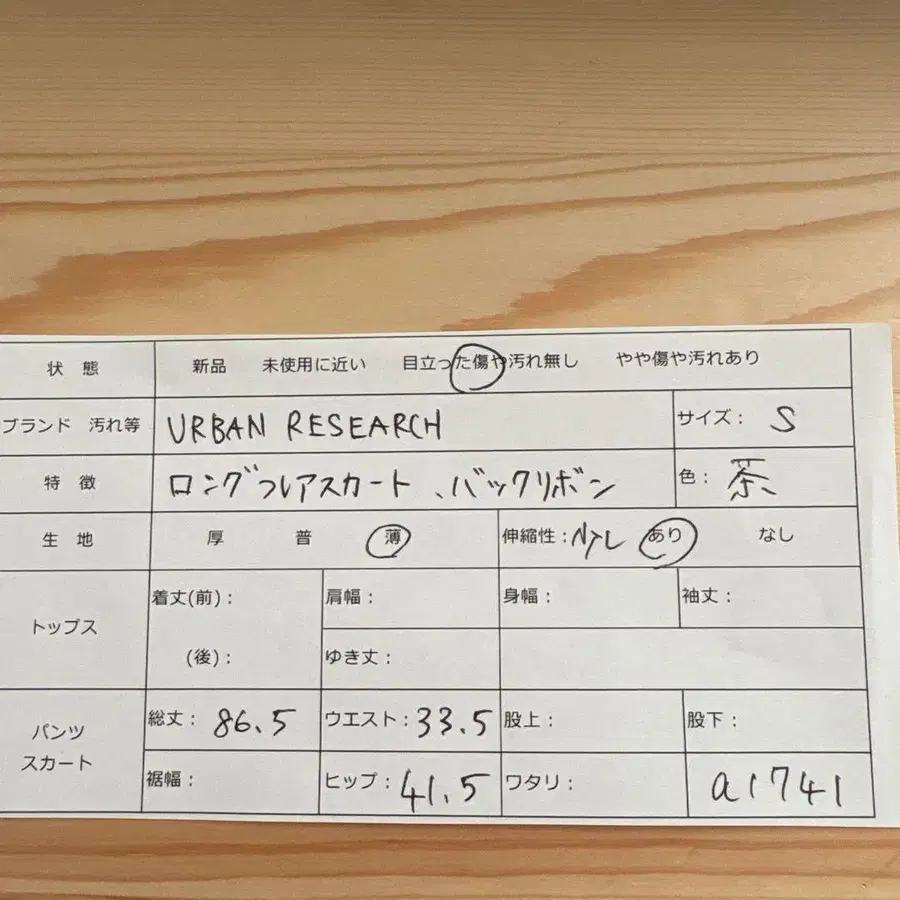 状 態 新品 未使用に近い 目立った傷や汚れ無し やや傷や汚れあり
ブランド 汚れ等 URBAN RESEARCH サイズ： S
特 徴 ロングフレアスカート、バックリボン 色： 茶
生 地 厚 普 薄 伸縮性： あり なし
トップス
着丈(前)： 肩幅： 身幅： 袖丈：
(後)： ゆき丈：
パンツ
スカート
総丈： 86.5 ウエスト： 33.5 股上： 股下：
裾幅： ヒップ： 41.5 ワタリ： a1741